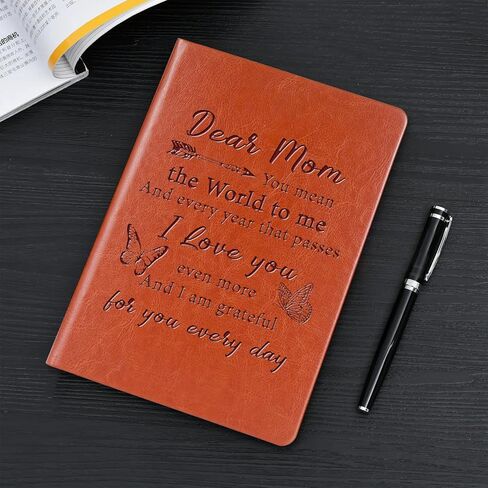 Dear Mom
You mean
the World to me
And every year that passes
I Love you
even more
And I am grateful
for you every day